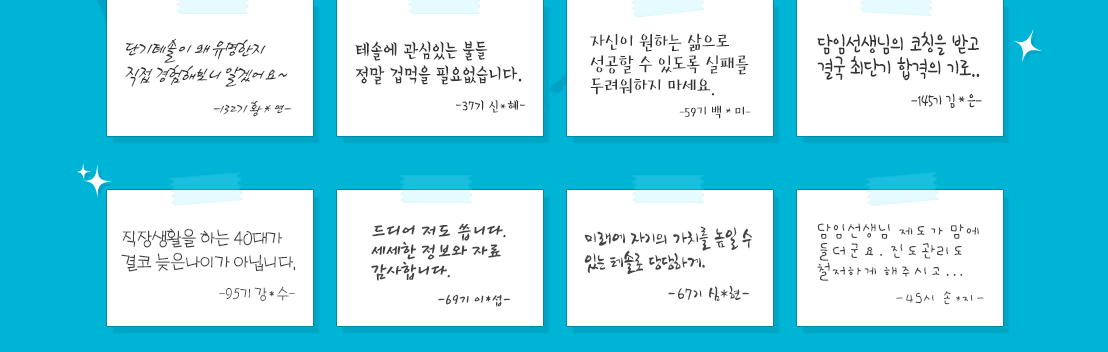 단기테솔이 왜 유명한지
직접 경험해보니 알겠어요~
-132기 황*연-
테솔에 관심있는 분들
정말 겁먹을 필요없습니다.
-37기 신*혜-
자신이 원하는 삶으로
성공할 수 있도록 실패를
두려워하지 마세요.
-59기 백*미-
담임선생님의 코칭을 받고
결국 최단기 합격의 기로..
-145기 김*은-
직장생활을 하는 40대가
결코 늦은나이가 아닙니다.
-95기 강*수-
드디어 저도 씁니다.
세세한 정보와 자료
감사합니다.
-69기 이*섭-
미래에 자기의 가치를 높일 수
있는 테솔로 당당하게.
-67기 심*현-
담임선생님 제도가 맘에
들더군요. 진도관리도
철저하게 해주시고...
-45시 손*지-